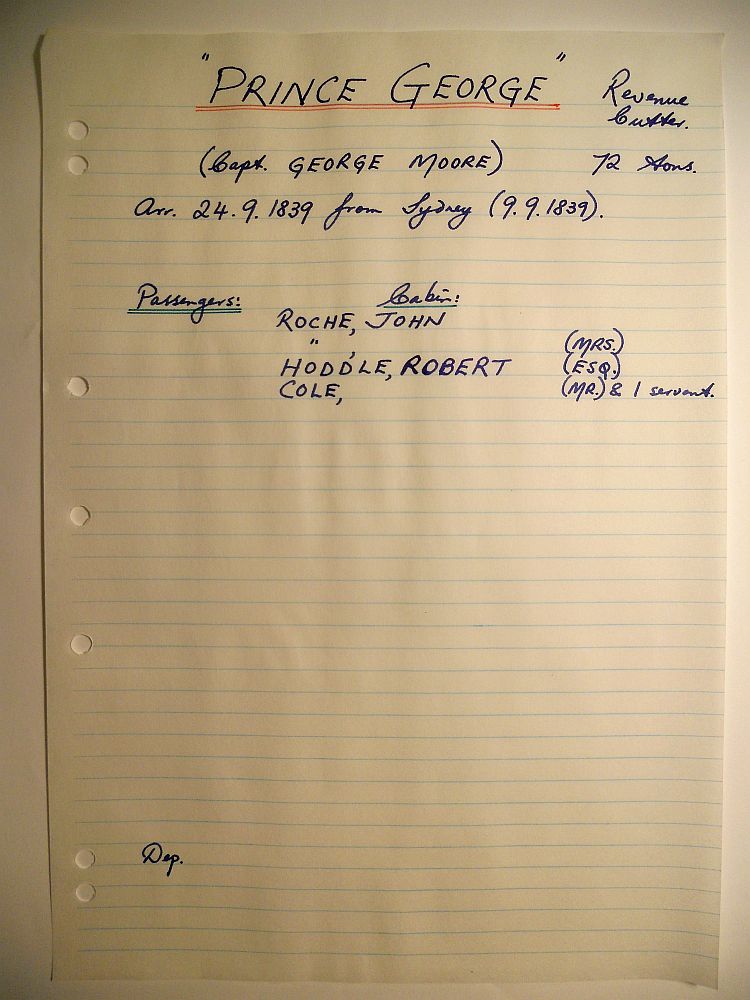 "PRINCE GEORGE" Revenue
Cutter.
(Capt. GEORGE MOORE) 72 tons.
Arr. 24.9.1839 from Sydney (9.9.1839).
Passengers: Cabin:
ROCHE, JOHN
" , (MRS.)
HODDLE, ROBERT (ESQ.)
COLE, (MR.) & 1 servant.
Dep.